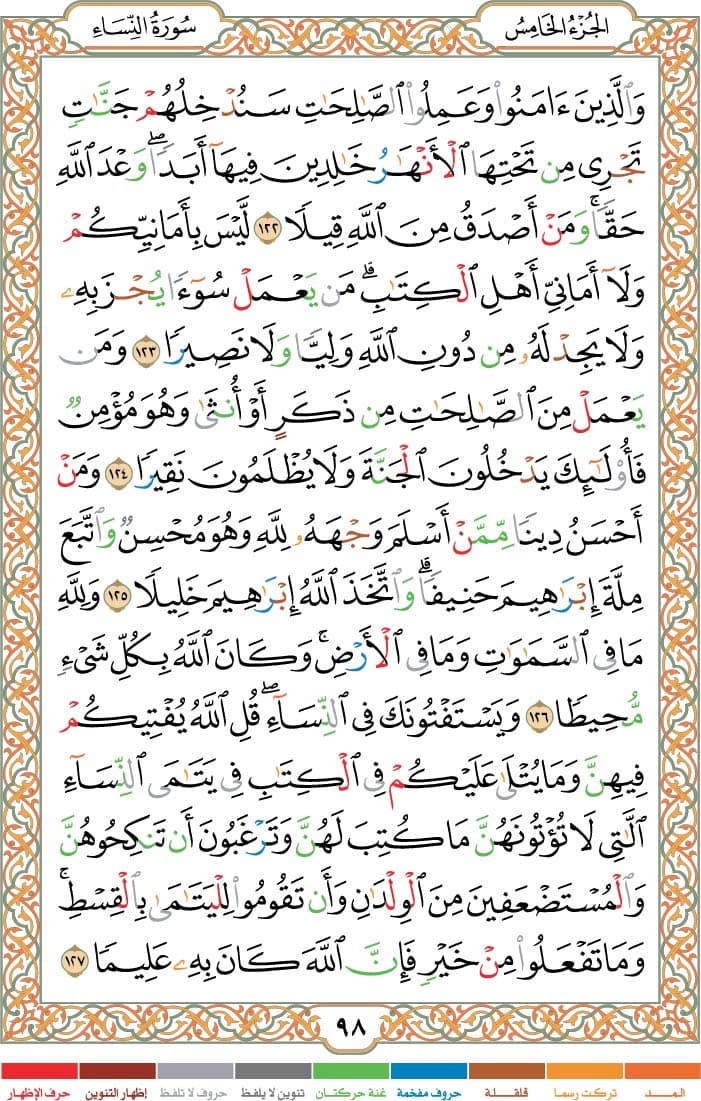 الجُزْءُ الخَامِسُ
سُورَةُ النِّسَاءِ
وَٱلَّذِينَ ءَامَنُوا۟ وَعَمِلُوا۟ ٱلصَّـٰلِحَـٰتِ سَنُدْخِلُهُمْ جَنَّـٰتٍ
تَجْرِى مِن تَحْتِهَا ٱلْأَنْهَـٰرُ خَـٰلِدِينَ فِيهَآ أَبَدًا ۖ وَعْدَ ٱللَّهِ
حَقًّا ۚ وَمَنْ أَصْدَقُ مِنَ ٱللَّهِ قِيلًا ١٢٢ لَّيْسَ بِأَمَانِيِّكُمْ
وَلَآ أَمَانِىِّ أَهْلِ ٱلْكِتَـٰبِ ۗ مَن يَعْمَلْ سُوٓءًا يُجْزَ بِهِۦ
وَلَا يَجِدْ لَهُۥ مِن دُونِ ٱللَّهِ وَلِيًّا وَلَا نَصِيرًا ١٢٣ وَمَن
يَعْمَلْ مِنَ ٱلصَّـٰلِحَـٰتِ مِن ذَكَرٍ أَوْ أُنثَىٰ وَهُوَ مُؤْمِنٌ
فَأُو۟لَـٰٓئِكَ يَدْخُلُونَ ٱلْجَنَّةَ وَلَا يُظْلَمُونَ نَقِيرًا ١٢٤ وَمَنْ
أَحْسَنُ دِينًا مِّمَّنْ أَسْلَمَ وَجْهَهُۥ لِلَّهِ وَهُوَ مُحْسِنٌ وَٱتَّبَعَ
مِلَّةَ إِبْرَٰهِيمَ حَنِيفًا ۗ وَٱتَّخَذَ ٱللَّهُ إِبْرَٰهِيمَ خَلِيلًا ١٢٥ وَلِلَّهِ
مَا فِى ٱلسَّمَـٰوَٰتِ وَمَا فِى ٱلْأَرْضِ ۚ وَكَانَ ٱللَّهُ بِكُلِّ شَىْءٍ
مُّحِيطًا ١٢٦ وَيَسْتَفْتُونَكَ فِى ٱلنِّسَآءِ ۖ قُلِ ٱللَّهُ يُفْتِيكُمْ
فِيهِنَّ وَمَا يُتْلَىٰ عَلَيْكُمْ فِى ٱلْكِتَـٰبِ فِى يَتَـٰمَى ٱلنِّسَآءِ
ٱلَّـٰتِى لَا تُؤْتُونَهُنَّ مَا كُتِبَ لَهُنَّ وَتَرْغَبُونَ أَن تَنكِحُوهُنَّ
وَٱلْمُسْتَضْعَفِينَ مِنَ ٱلْوِلْدَٰنِ وَأَن تَقُومُوا۟ لِلْيَتَـٰمَىٰ بِٱلْقِسْطِ ۚ
وَمَا تَفْعَلُوا۟ مِنْ خَيْرٍ فَإِنَّ ٱللَّهَ كَانَ بِهِۦ عَلِيمًا ١٢٧
٩٨
المــد تركت رسما قلقلة حروف مفخمة غنة حركتان تنوين لا يلفظ حروف لا تلفظ إظهار التنوين حرف الإظهار